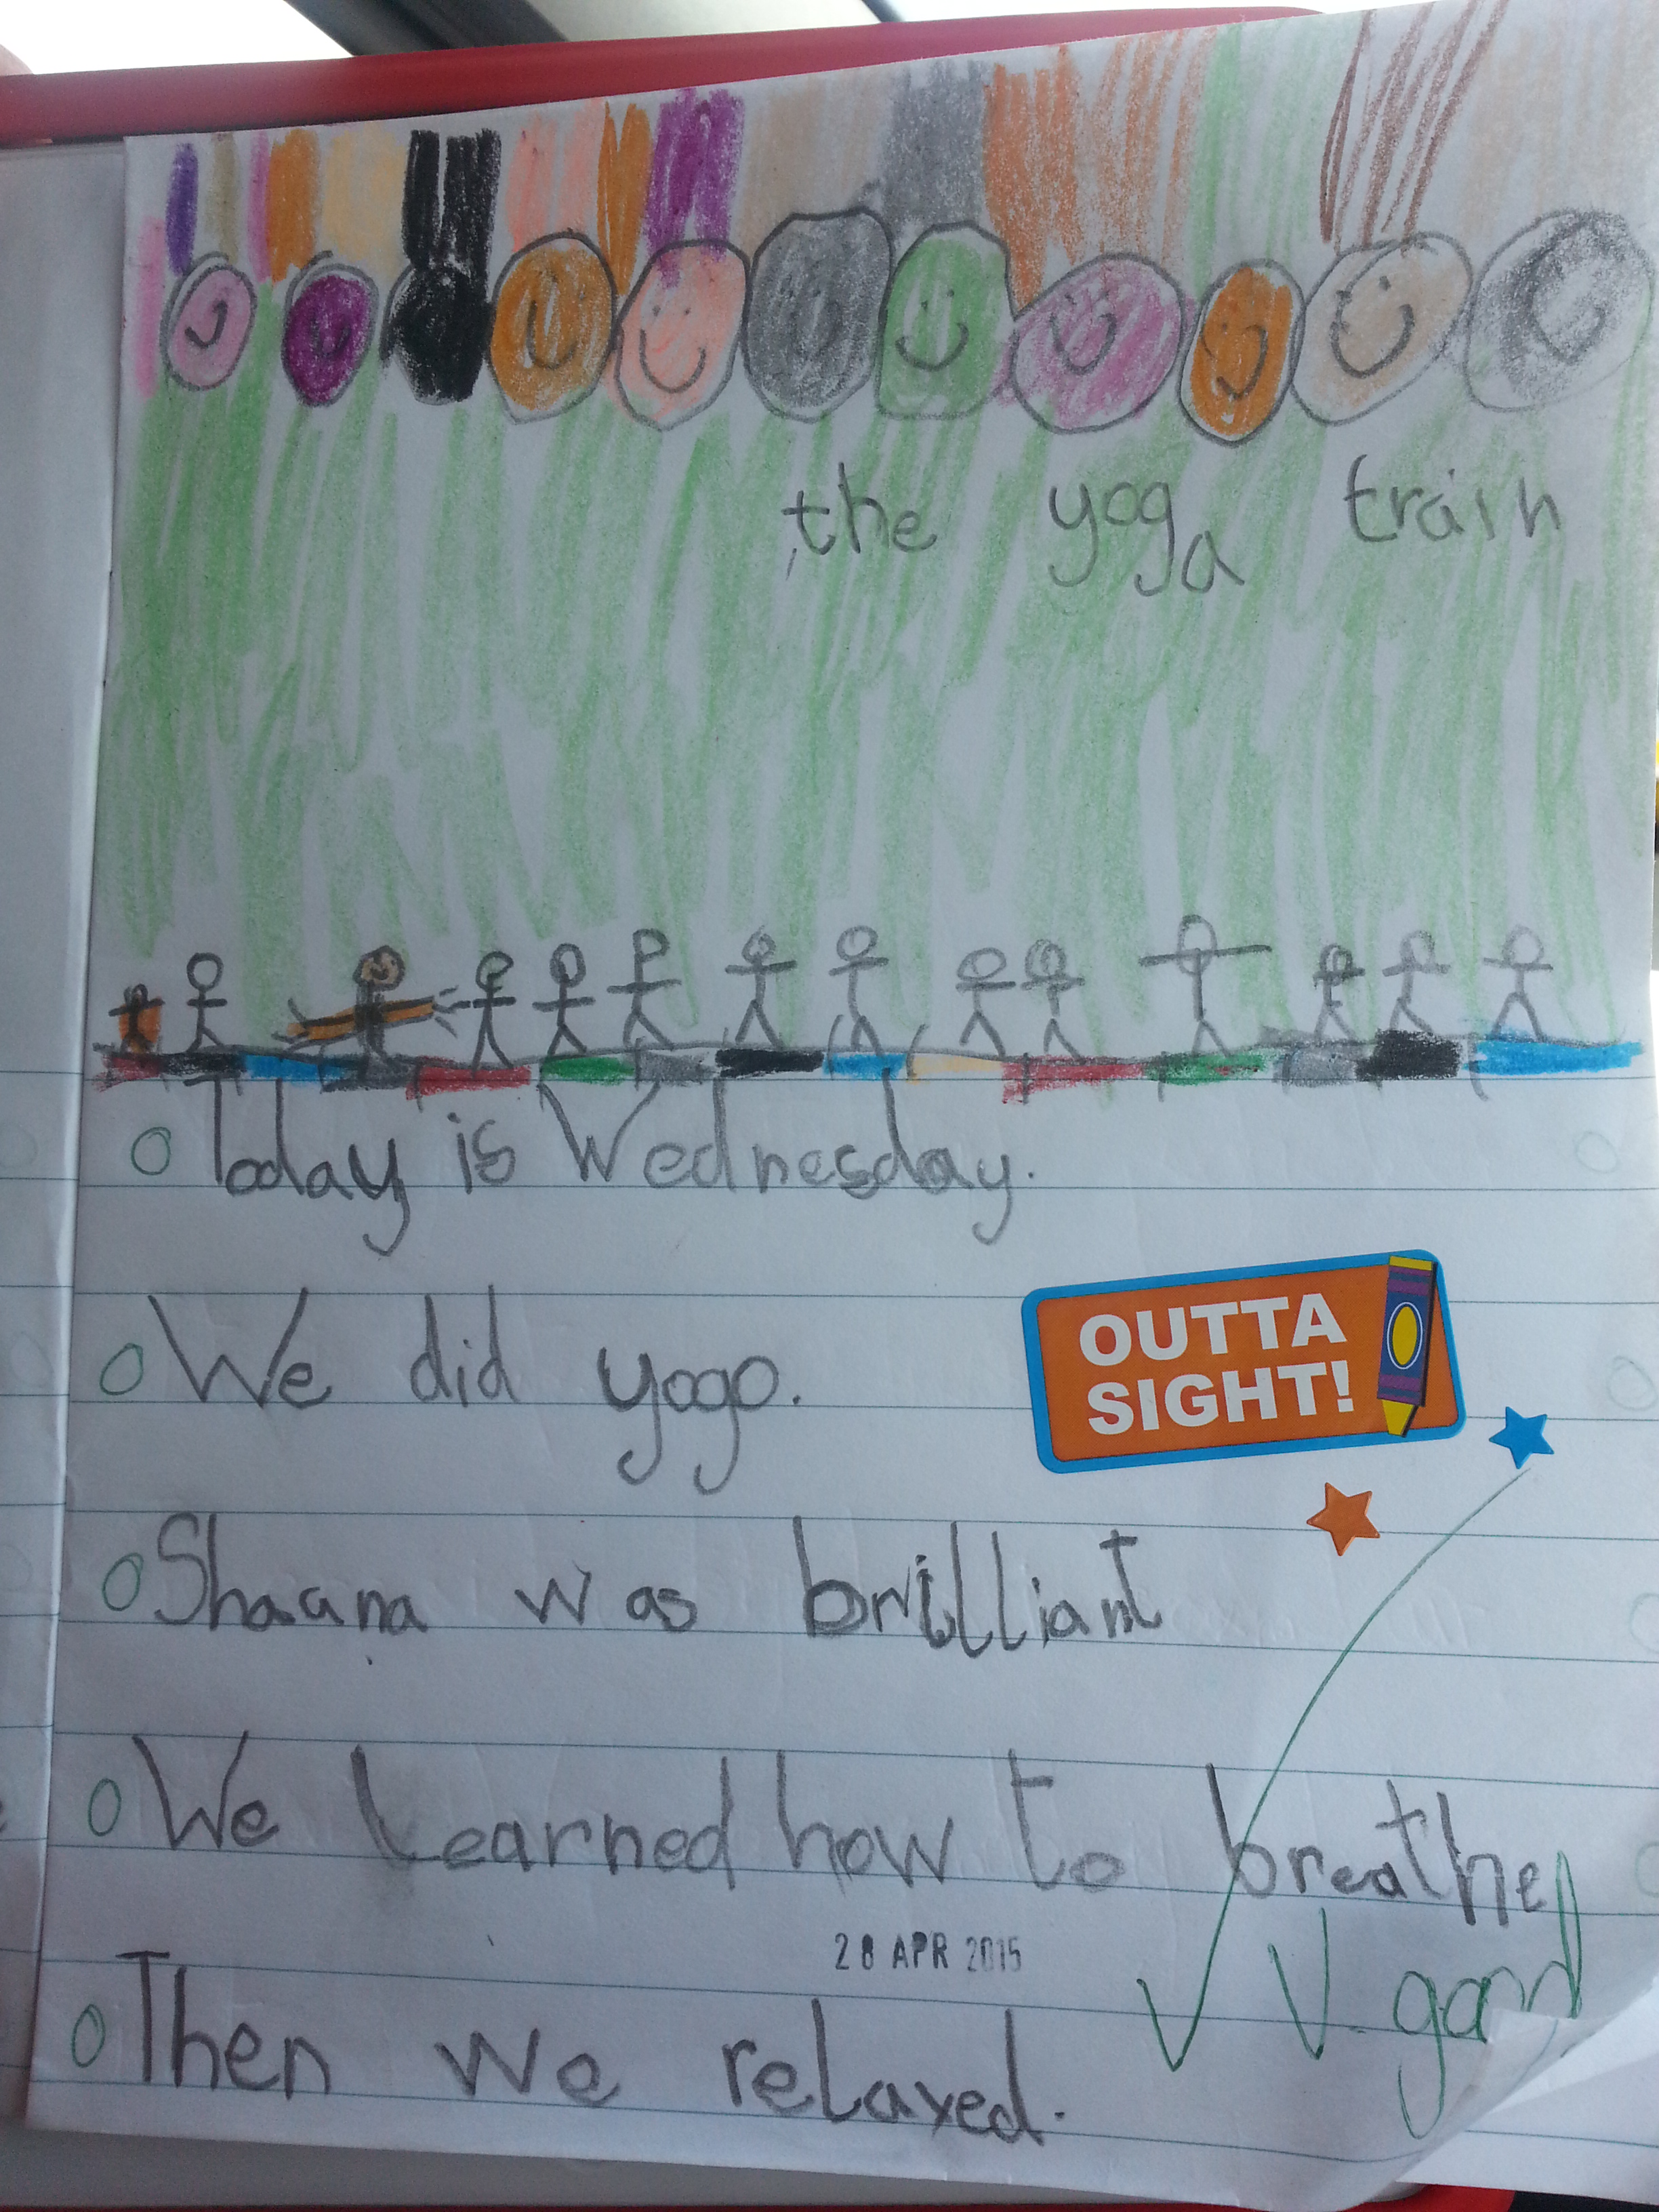 the yoga train
Today is Wednesday.
We did yogo.
OUTTA
SIGHT!
Shaana was brilliant
We Learned how to breathe
28 APR 2015
V. good
Then we relaxed.